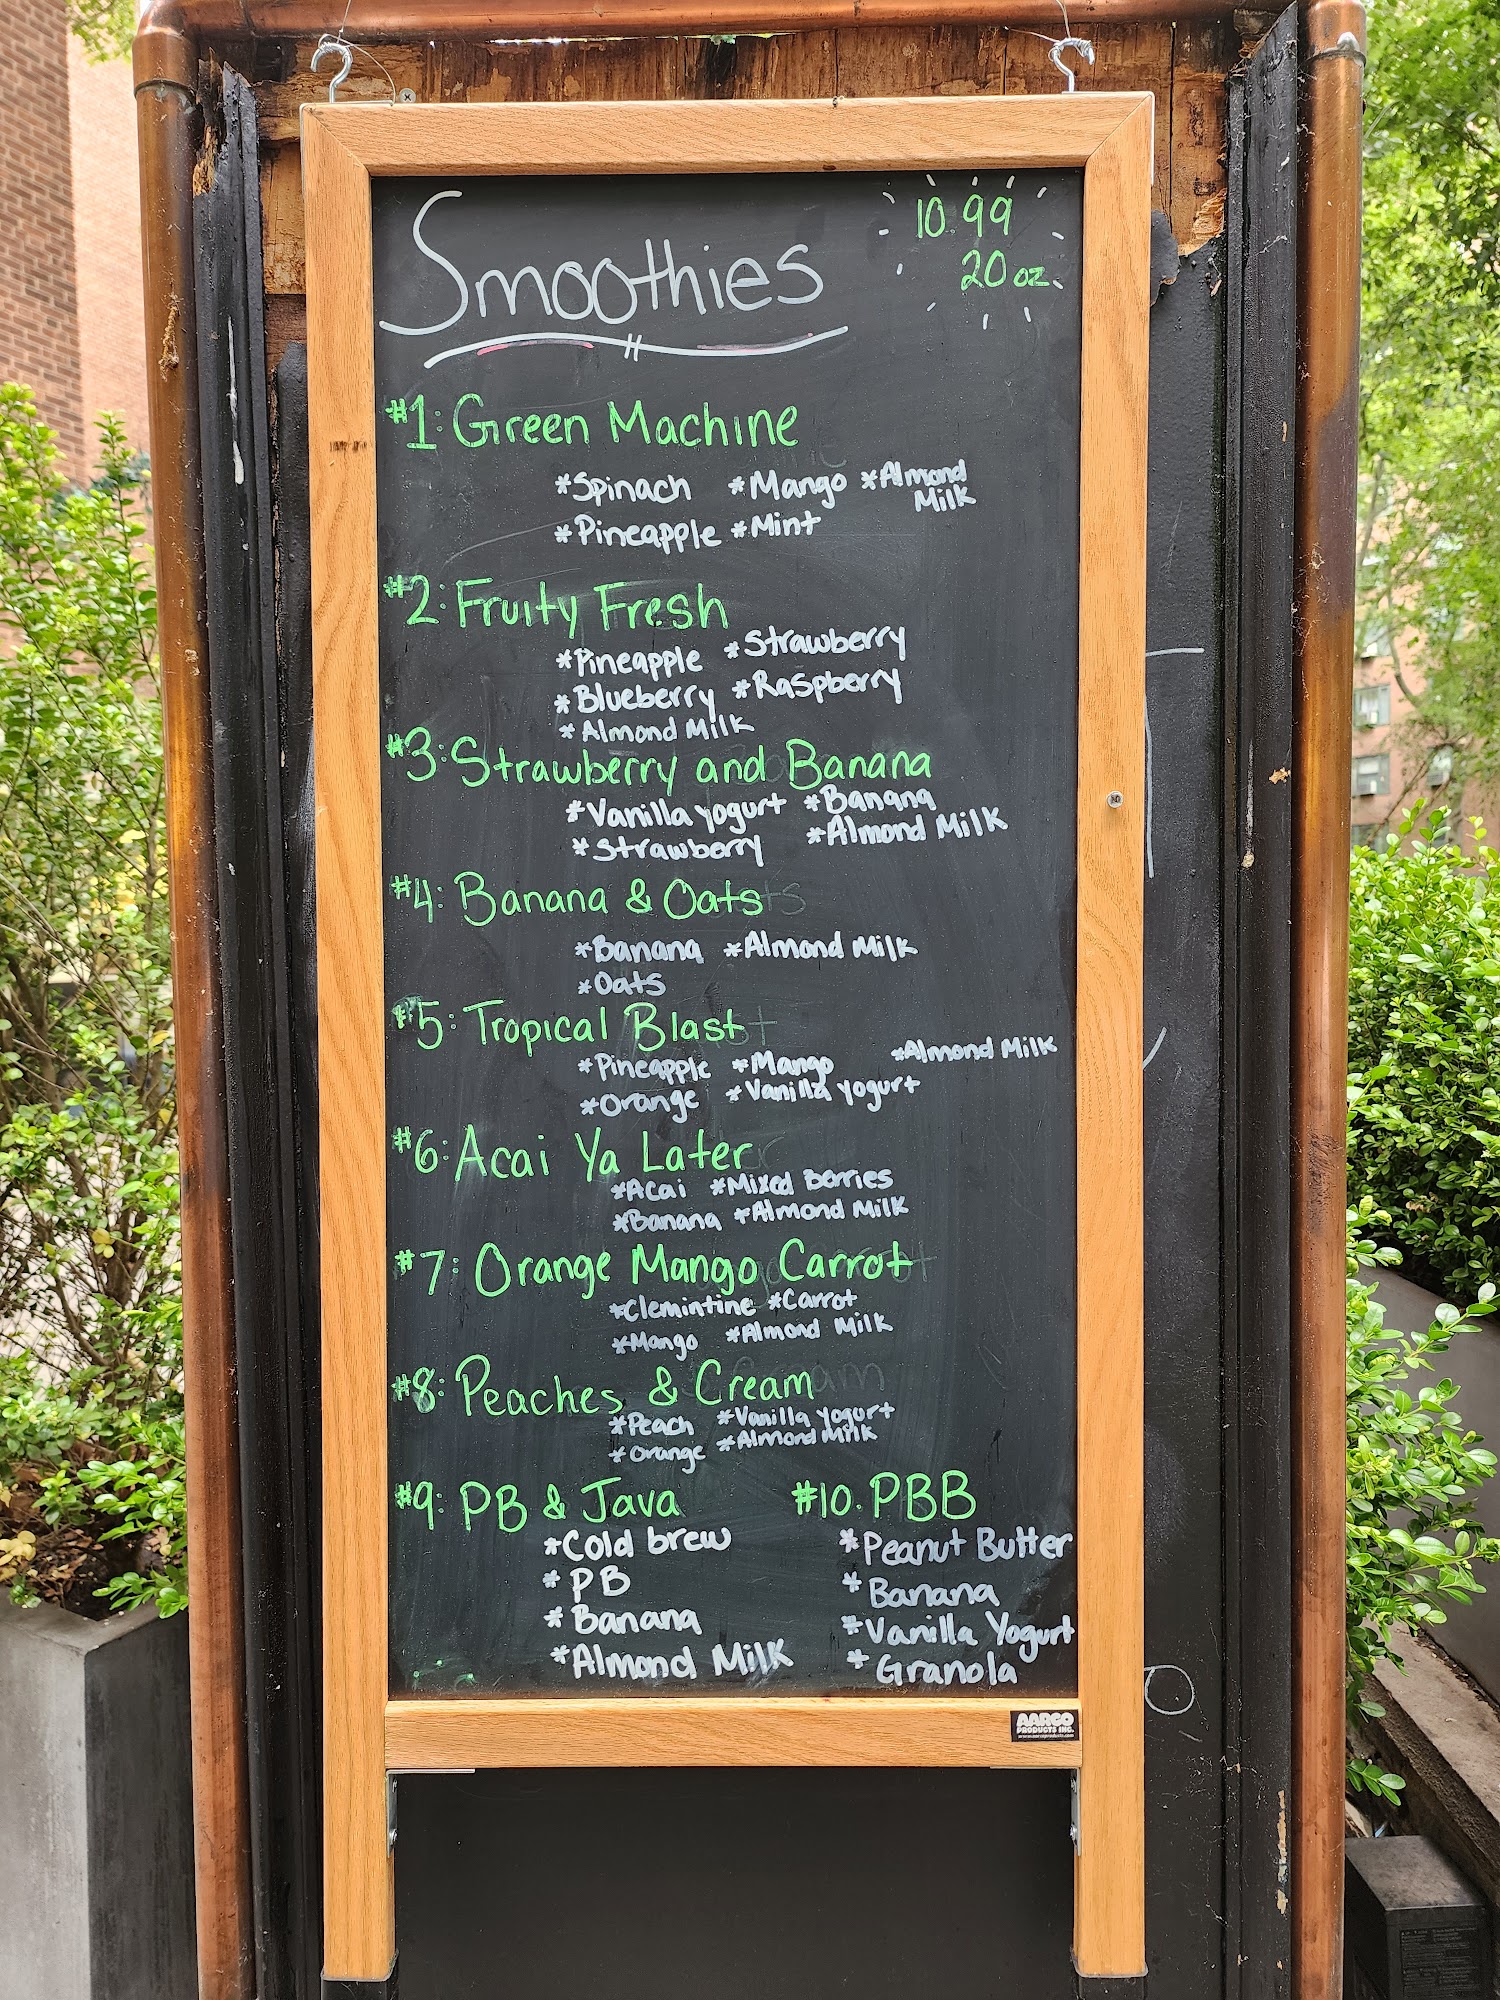 Smoothies
10.99
20 oz.
#1: Green Machine
*Spinach *Mango *Almond Milk
*Pineapple *Mint
#2: Fruity Fresh
*Pineapple *Strawberry
*Blueberry *Raspberry
*Almond Milk
#3: Strawberry and Banana
*Vanilla yogurt *Banana
*Strawberry *Almond Milk
#4: Banana & Oats
*Banana *Almond Milk
*Oats
#5: Tropical Blast
*Pineapple *Mango *Almond Milk
*Orange *Vanilla yogurt
#6: Acai Ya Later
*Acai *Mixed berries
*Banana *Almond Milk
#7: Orange Mango Carrot
*Clemintine *Carrot
*Mango *Almond Milk
#8: Peaches & Cream
*Peach *Vanilla yogurt
*Orange *Almond Milk
#9: PB & Java
*Cold brew
*PB
*Banana
*Almond Milk
#10. PBB
*Peanut Butter
*Banana
*Vanilla Yogurt
*Granola
AARCO
PRODUCTS INC.